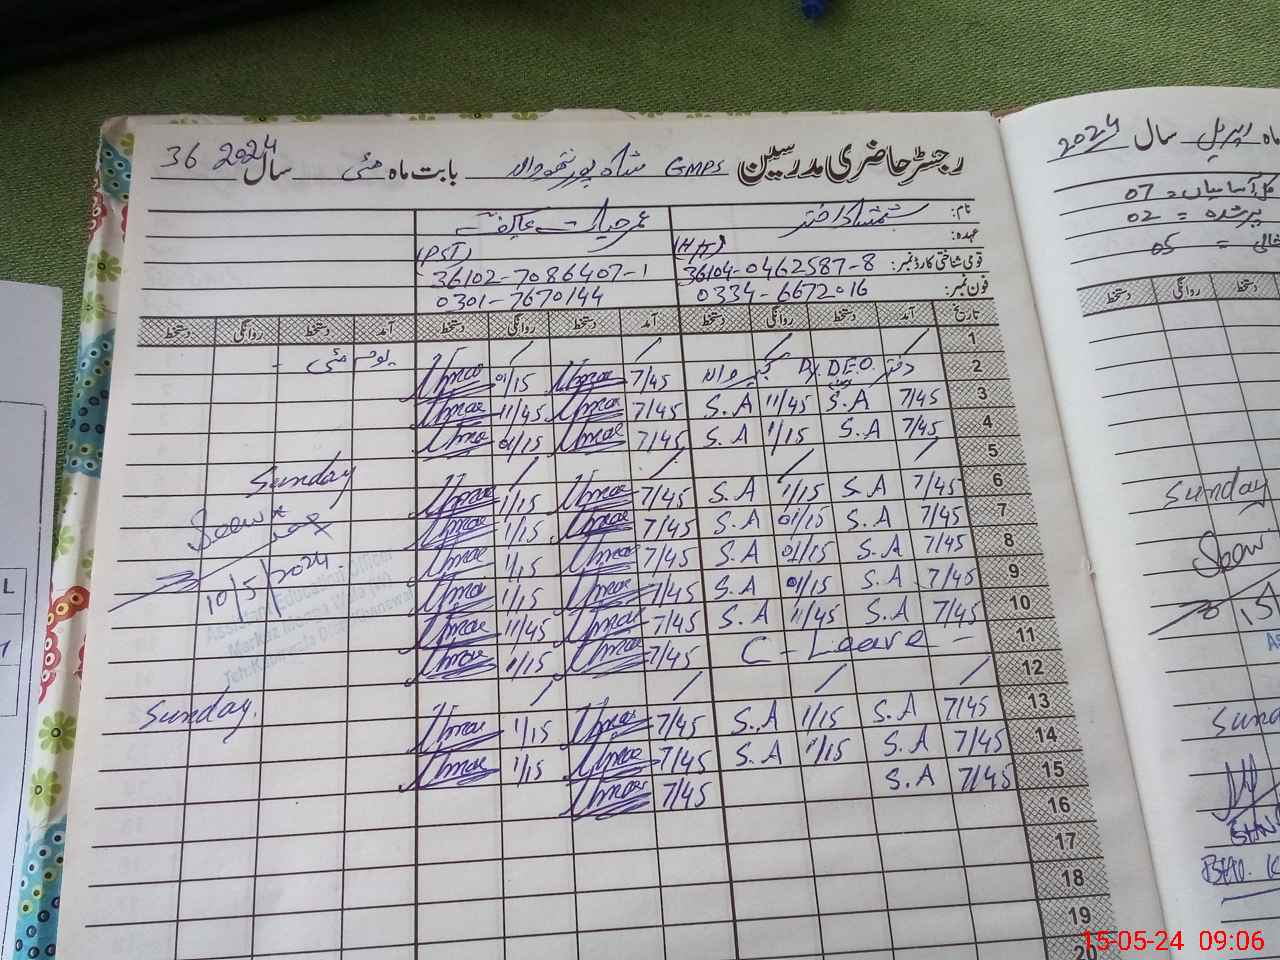 رجسٹر حاضری مدرسین GMPS شاہ پور نتھووالہ بابت ماہ مئی سال 2024 36
نام: شمشاد اختر عمر حیات
عہدہ: (HT) (PST)
قومی شناختی کارڈ نمبر: 36104-0462587-8 36102-7086407-1
فون نمبر: 0334-6672016 0301-7670144
تاریخ آمد دستخط روانگی دستخط آمد دستخط روانگی دستخط آمد دستخط روانگی دستخط
1 یوم مئی -
2 دفتر Dy. DEO. کبیروالہ 7/45 Umar 01/15 Umar
3 7/45 S.A 11/45 S.A 7/45 Umar 11/45 Umar
4 7/45 S.A 1/15 S.A 7/45 Umar 01/15 Umar
5 Sunday
6 7/45 S.A 1/15 S.A 7/45 Umar 1/15 Umar
7 7/45 S.A 01/15 S.A 7/45 Umar 1/15 Umar
8 7/45 S.A 01/15 S.A 7/45 Umar 1/15 Umar
9 7/45 S.A 01/15 S.A 7/45 Umar 1/15 Umar
10 7/45 S.A 11/45 S.A 7/45 Umar 11/45 Umar
11 C - Leave - 7/45 Umar 1/15 Umar
10/5/2024.
Assistant Education Officer
12 Sunday.
13 7/45 S.A 1/15 S.A 7/45 Umar 1/15 Umar
14 7/45 S.A 1/15 S.A 7/45 Umar 1/15 Umar
15 7/45 S.A 7/45 Umar
16
17
18
19
20
ماہ اپریل سال 2024
کل آسامیاں = 07
پر شدہ = 02
خالی = 05
دستخط روانگی دستخط
Sunday
15-05-24 09:06